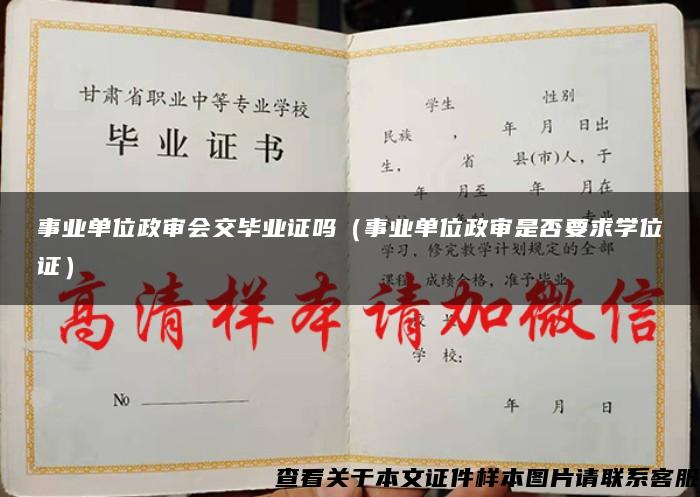 甘肃省职业中等专业学校
毕业证书
No
学生 性别
民族 , 年 月 日出
生, 省 县(市)人, 于
年 月至 年 月在
专业
学习, 修完教学计划规定的全部
课程, 成绩合格, 准予毕业
校长
学 校:
年 月 日
事业单位政审会交毕业证吗（事业单位政审是否要求学位
证）
高清样本请加微信
查看关于本文证件样本图片请联系客服